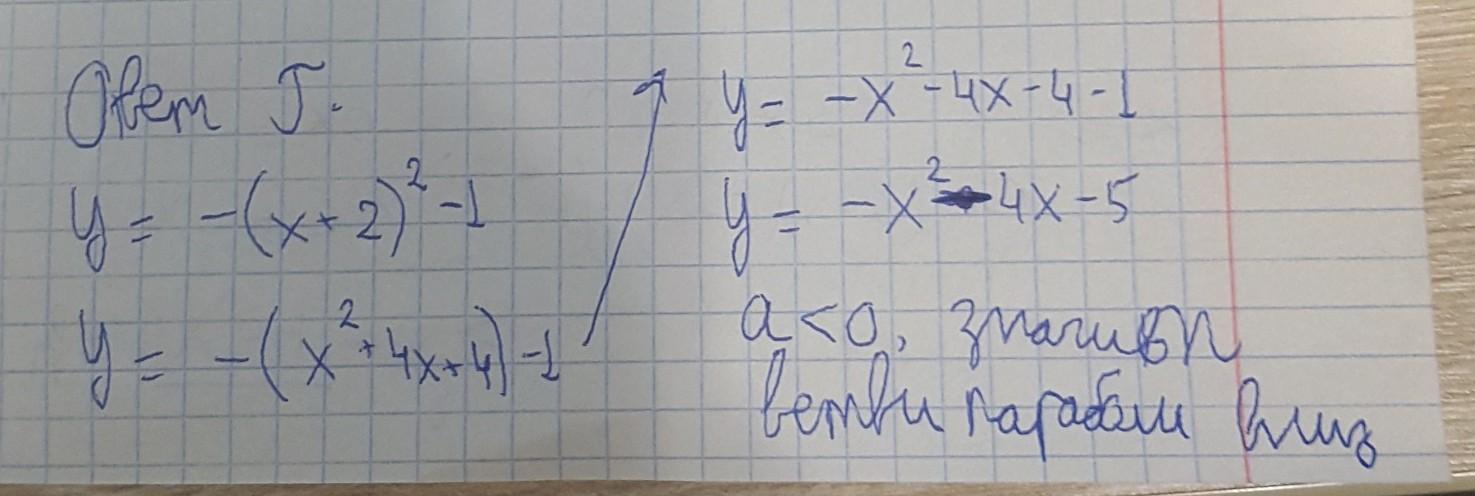 Ответ Г.
y = -(x+2)² -1
y = -(x²+4x+4)-1
y = -x²-4x-4-1
y = -x²-4x-5
a<0, значит
ветви параболы вниз